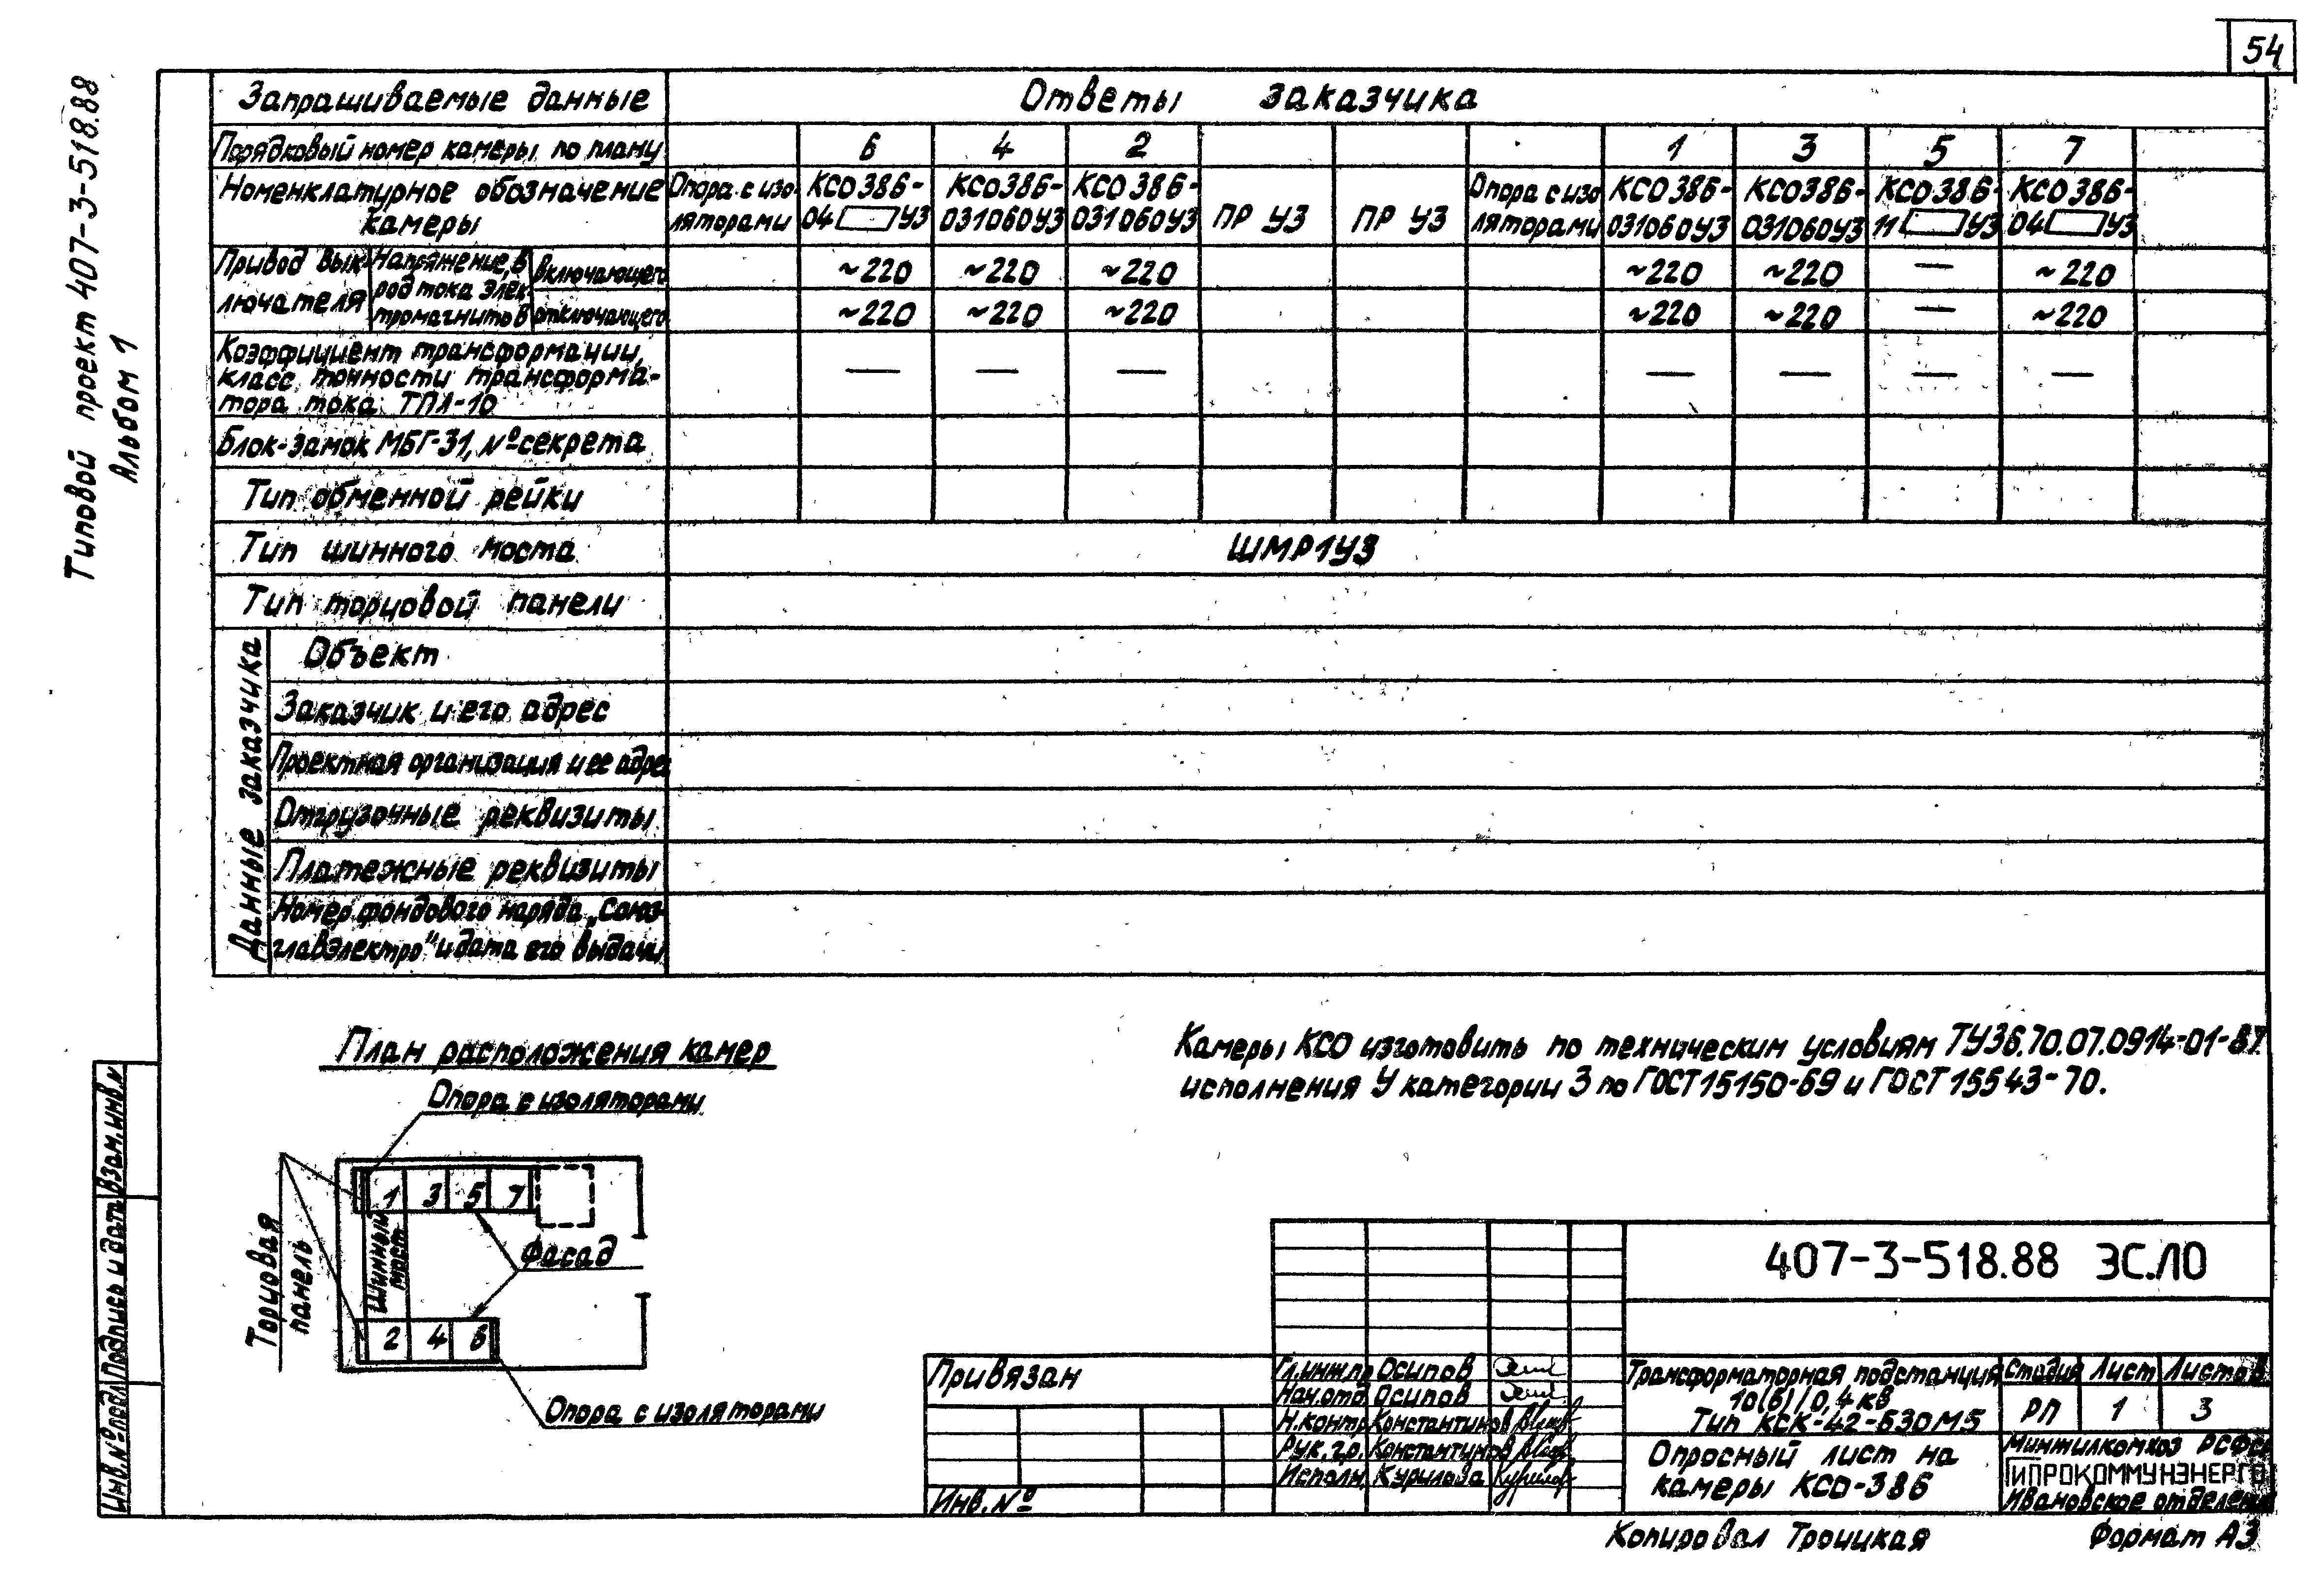 54
Типовой проект 407-3-518.88
Альбом 1
Запрашиваемые данные Ответы заказчика
Порядковый номер камеры по плану 6 4 2 1 3 5 7
Номенклатурное обозначение Опора с изо- КСО386- КСО386- КСО386- Опора с изо КСО386- КСО386- КСО386- КСО386-
камеры ляторами 04 У3 031060У3 031060У3 ПР У3 ПР У3 ляторами 031060У3 031060У3 11 У3 04 У3
Привод вык- Напряжение, в включающего ~220 ~220 ~220 ~220 ~220 — ~220
лючателя род тока элек-
тромагнитов отключающего ~220 ~220 ~220 ~220 ~220 — ~220
Коэффициент трансформации,
класс точности трансформа- — — — — — — —
тора тока ТПЛ-10
Блок-замок МБГ-31, № секрета
Тип обменной рейки
Тип шинного моста ШМР1У3
Тип торцовой панели
Данные заказчика
Объект
Заказчик и его адрес
Проектная организация и ее адрес
Отгрузочные реквизиты
Платежные реквизиты
Номер фондового наряда „Союз-
главэлектро" и дата его выдачи
План расположения камер
Опора с изоляторами
Торцовая
панель
1 3 5 7
Шинный
мост
Фасад
2 4 6
Опора с изоляторами
Камеры КСО изготовить по техническим условиям ТУ36.70.07.0914-01-87.
исполнения У категории 3 по ГОСТ 15150-69 и ГОСТ 15543-70.
Взам.инв.№
Подпись и дата
Инв.№ подл.
407-3-518.88 ЭС.ЛО
Привязан
Инв.№
Гл.инж.пр Осипов
Нач.отд. Осипов
Н.контр Константинов
Рук.гр. Константинов
Исполн. Курилова
Трансформаторная подстанция
10(6)/0,4 кв
Тип КСК-42-630М5
Стадия Лист Листов
РП 1 3
Опросный лист на
камеры КСО-386
Минжилкомхоз РСФСР
ГИПРОКОММУНЭНЕРГО
Ивановское отделение
Копировал Троицкая Формат А3